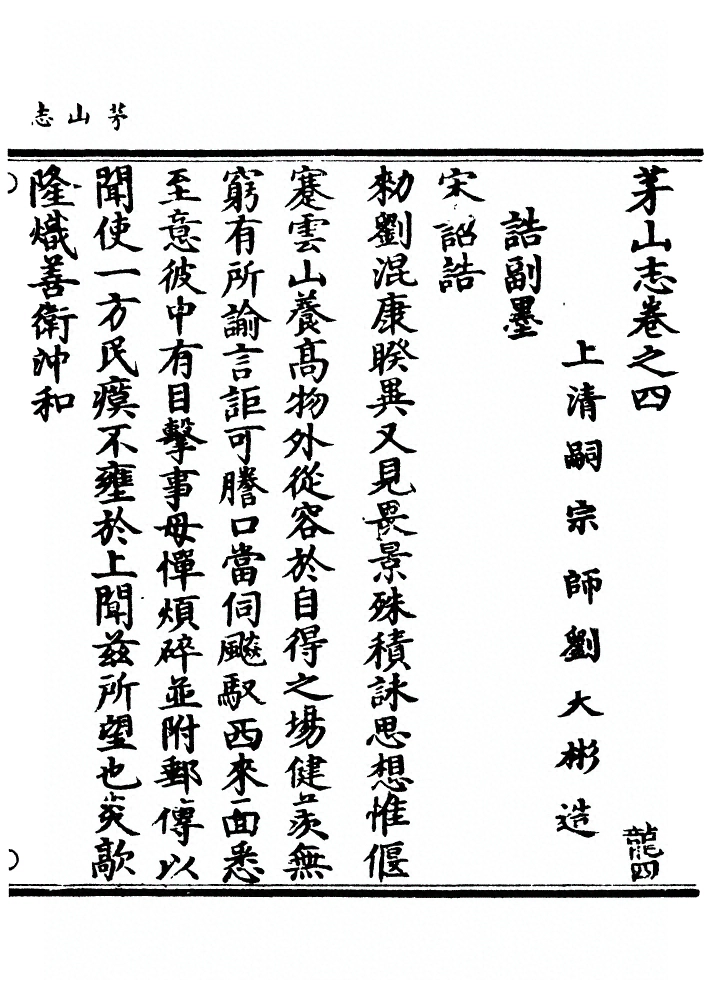 茅山志
茅山志卷之四
上清嗣宗師劉大彬造
龍四
誥副墨
宋詔誥
勑劉混康睽異又見畏景殊積詠思想惟偃
蹇雲山養高物外從容於自得之場健羨無
窮有所諭言詎可謄口當伺飈馭西來面悉
至意彼中有目擊事毋憚煩碎並附郵傳以
聞使一方民瘼不壅於上聞茲所望也炎歊
隆熾善衛沖和